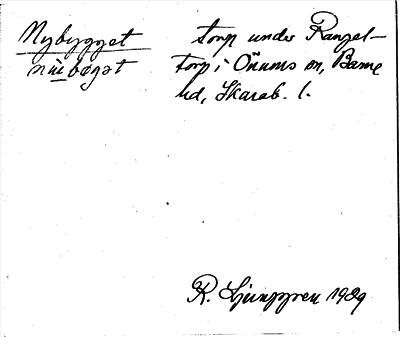 Nybygget
nỳbøgət
torp under Ranzel-
torp i Önums sn, Barne
hd, Skarab. l.
R. Ljunggren 1929